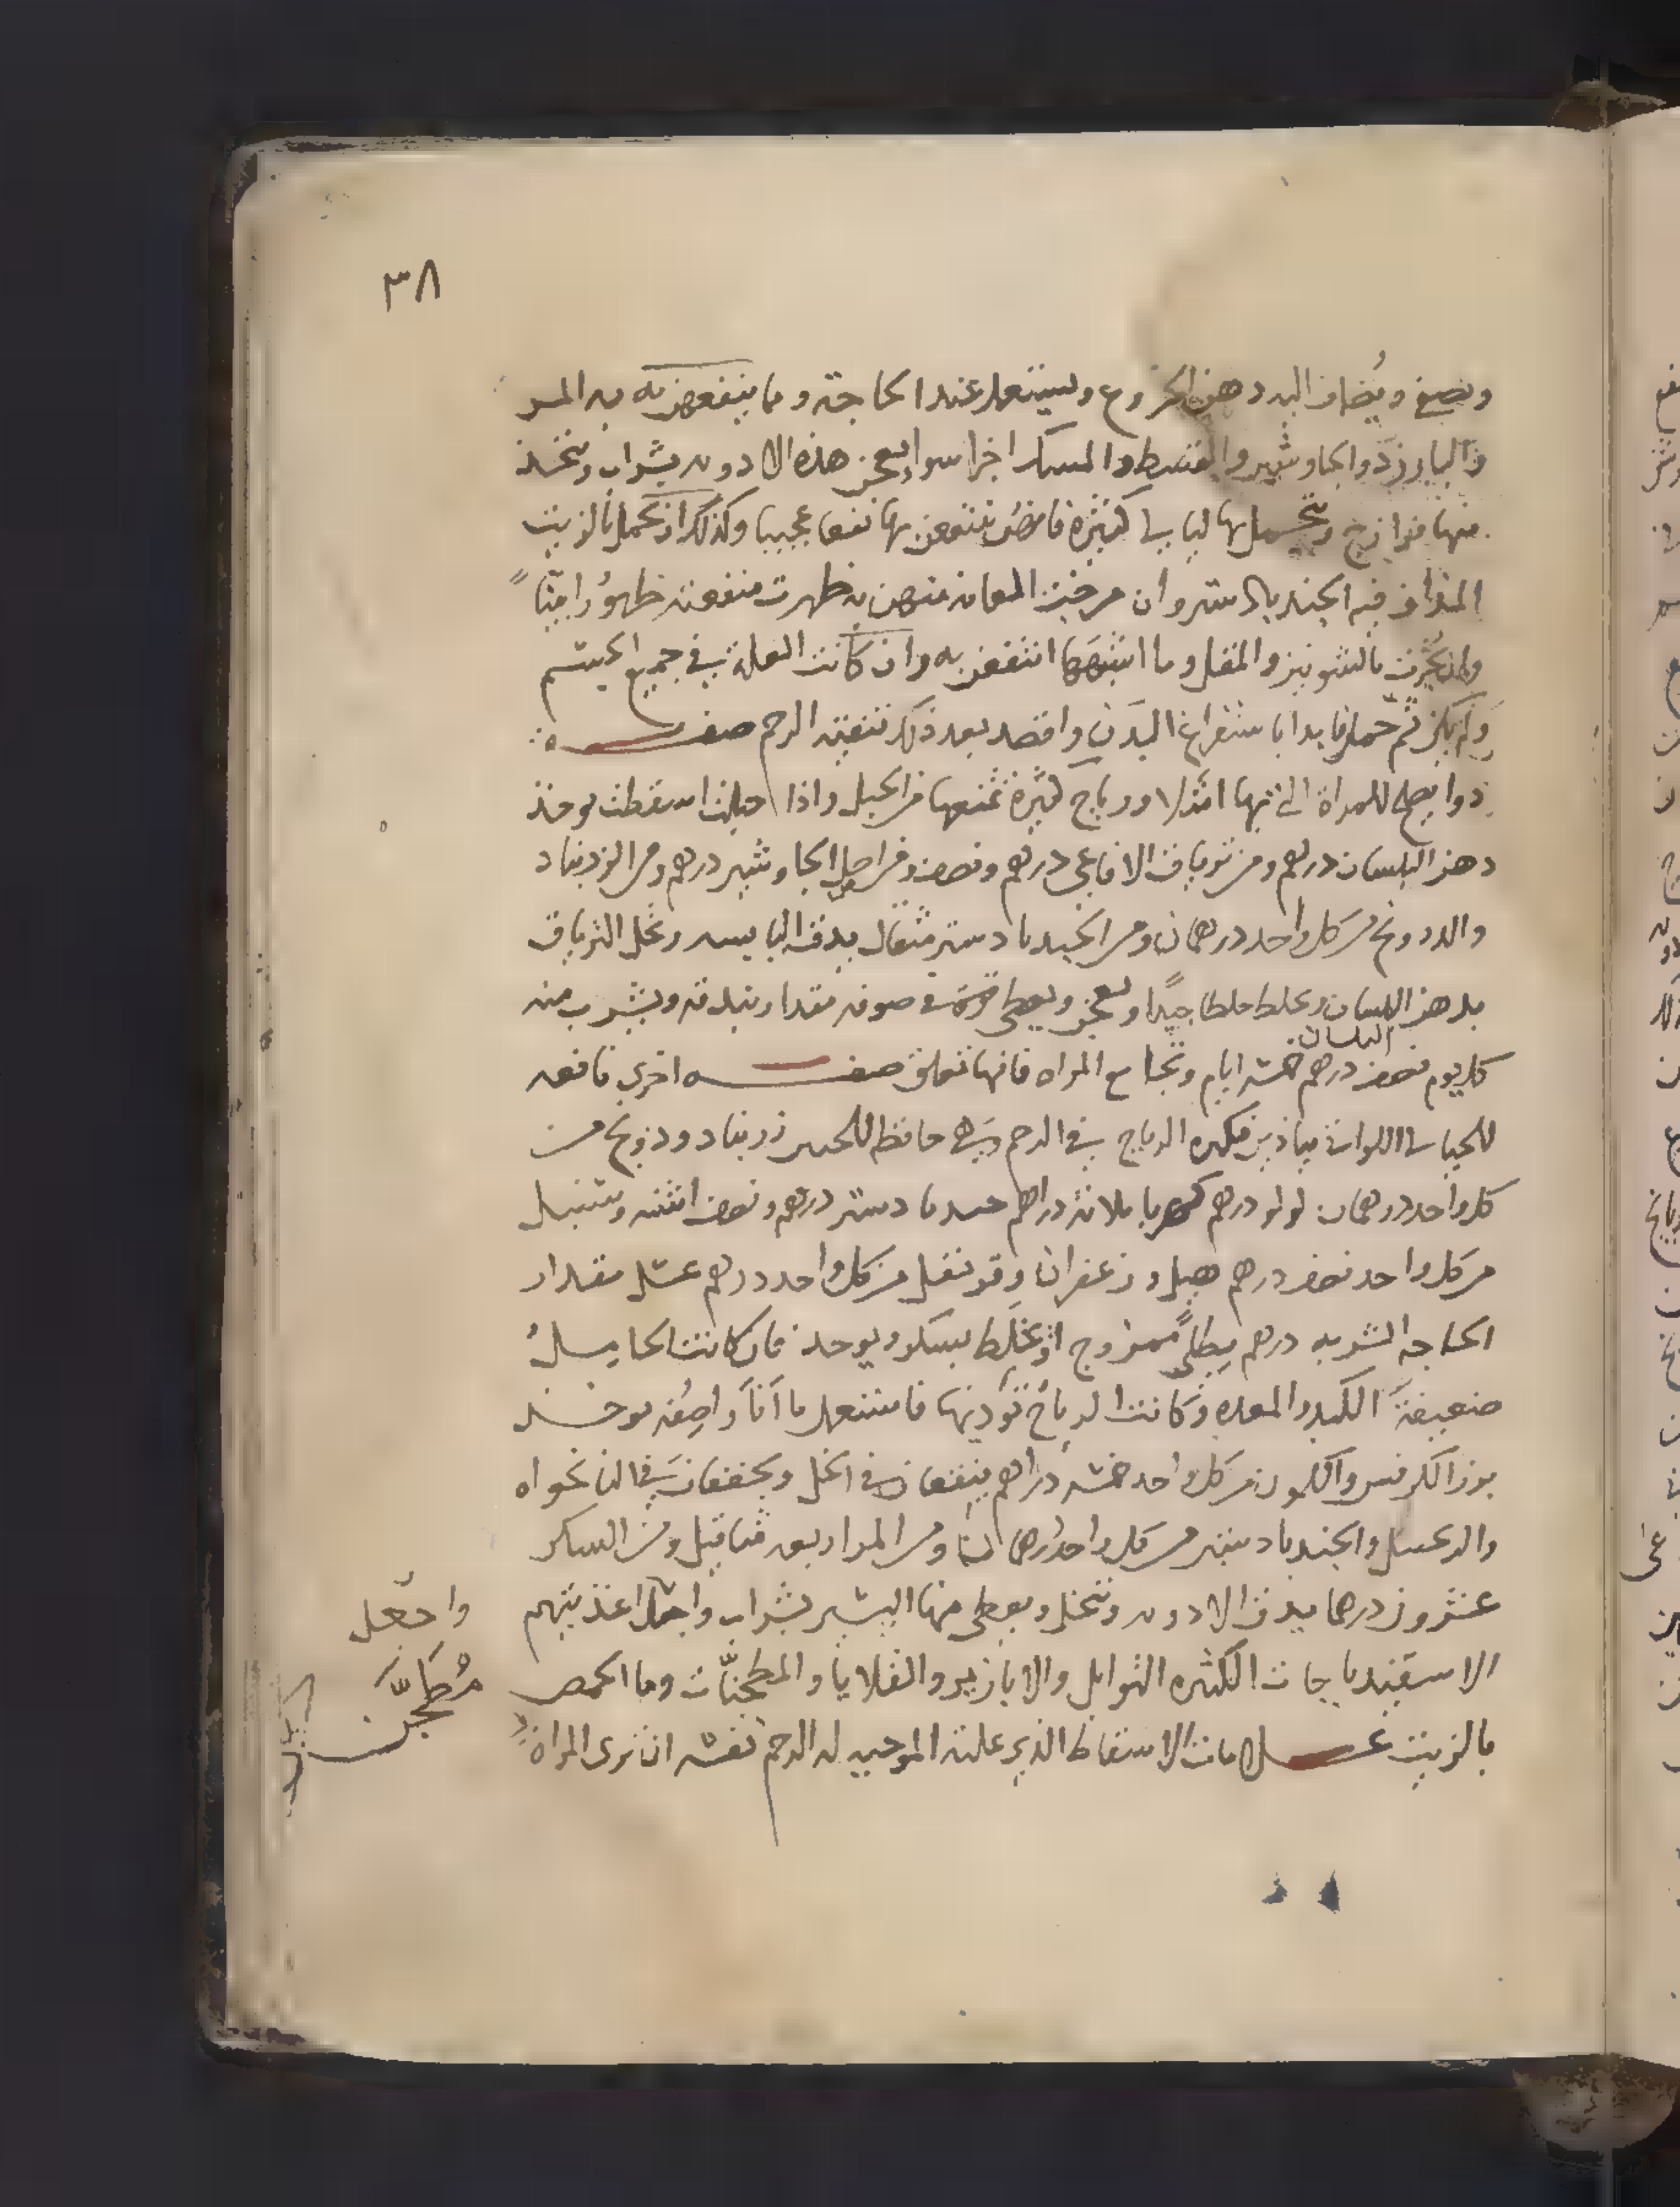 ٣٨
ويصفى ويضاف اليه دهن الخروع ويستعمل عند الحاجة ومما ينتفعن به المر
والبارزد والجاوشير والقسط والمسك اجزا سوا يعجن هذه الادوية بشراب ويتخذ
منها فرازج ويتحمل بها ليالي كثيرة فانهن ينتفعن بها نفعا عجيبا وكذلك ان تحمل بالزيت
المذاف فيه الجندبادستر وان مرخت العانة منهن به ظهرت منفعته ظهورا بينا
وان بخرت بالشونيز والمقل وما اشبهها انتفعن به وان كانت العلة في جميع الجسم
ولم يكن ثم حمل فابدا باستفراغ البدن واقصد بعد ذلك تنقية الرحم صفة
دوا يصلح للمراة التي بها امتلا ورياح كثيرة تمنعها من الحبل واذا حبلت اسقطت يوخذ
دهن البلسان درهم ومن ترياق الافاعي درهم ونصف ومن اصل الجاوشير درهم ومن الزرنباد
والدرونج من كل واحد درهمان ومن الجندبادستر مثقال يدق اليابسه ويحل الترياق
بدهن البلسان ويخلط خلطا جيدا ويعجن ويعطى في صوفه مقدار بندقه ويشرب منه
البلسان
كل يوم نصف درهم خمسة ايام وتجامع المراه فانها تعلق صفة اخرى نافعه
للحبالى اللواتي يتاذين بكثرة الرياح في الرحم وهي حافظه للجنين زرنباد ودرونج من
كل واحد درهمان لولو درهم كهربا ثلاثة دراهم جندبادستر درهم ونصف اشنه وسنبل
من كل واحد نصف درهم هيل وزعفران وقرنفل من كل واحد درهم عسل مقدار
الحاجه الشربه درهم بطلى ممزوج او يخلط بسكر ويوخذ فان كانت الحامل
ضعيفة الكبد والمعده وكانت الرياح تؤذيها فاستعمل ما انا واصفه يوخذ
بزر الكرفس والكمون من كل واحد خمسة دراهم ينقعان في الخل ويجففان في النانخواه
والزنجبيل والجندبادستر من كل واحد درهمان ومن المر اربعه مثاقيل ومن السكر
عشرون درهما يدق الادويه وتنخل ويعطى منها اليسير بشراب واجعل اغذيتهم
الاسفيدباجات الكثيره التوابل والابازير والقلايا والمطجنات وما الحمص
بالزيت علامات الاسقاط الذي علته الموجبه له الرحم نفسه ان ترى المراة
واجعل
مطجن